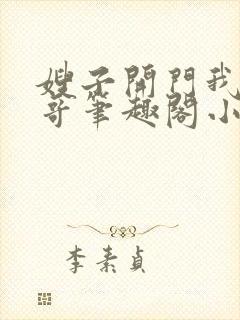 嫂子開門我
哥筆趣閣小
李素貞